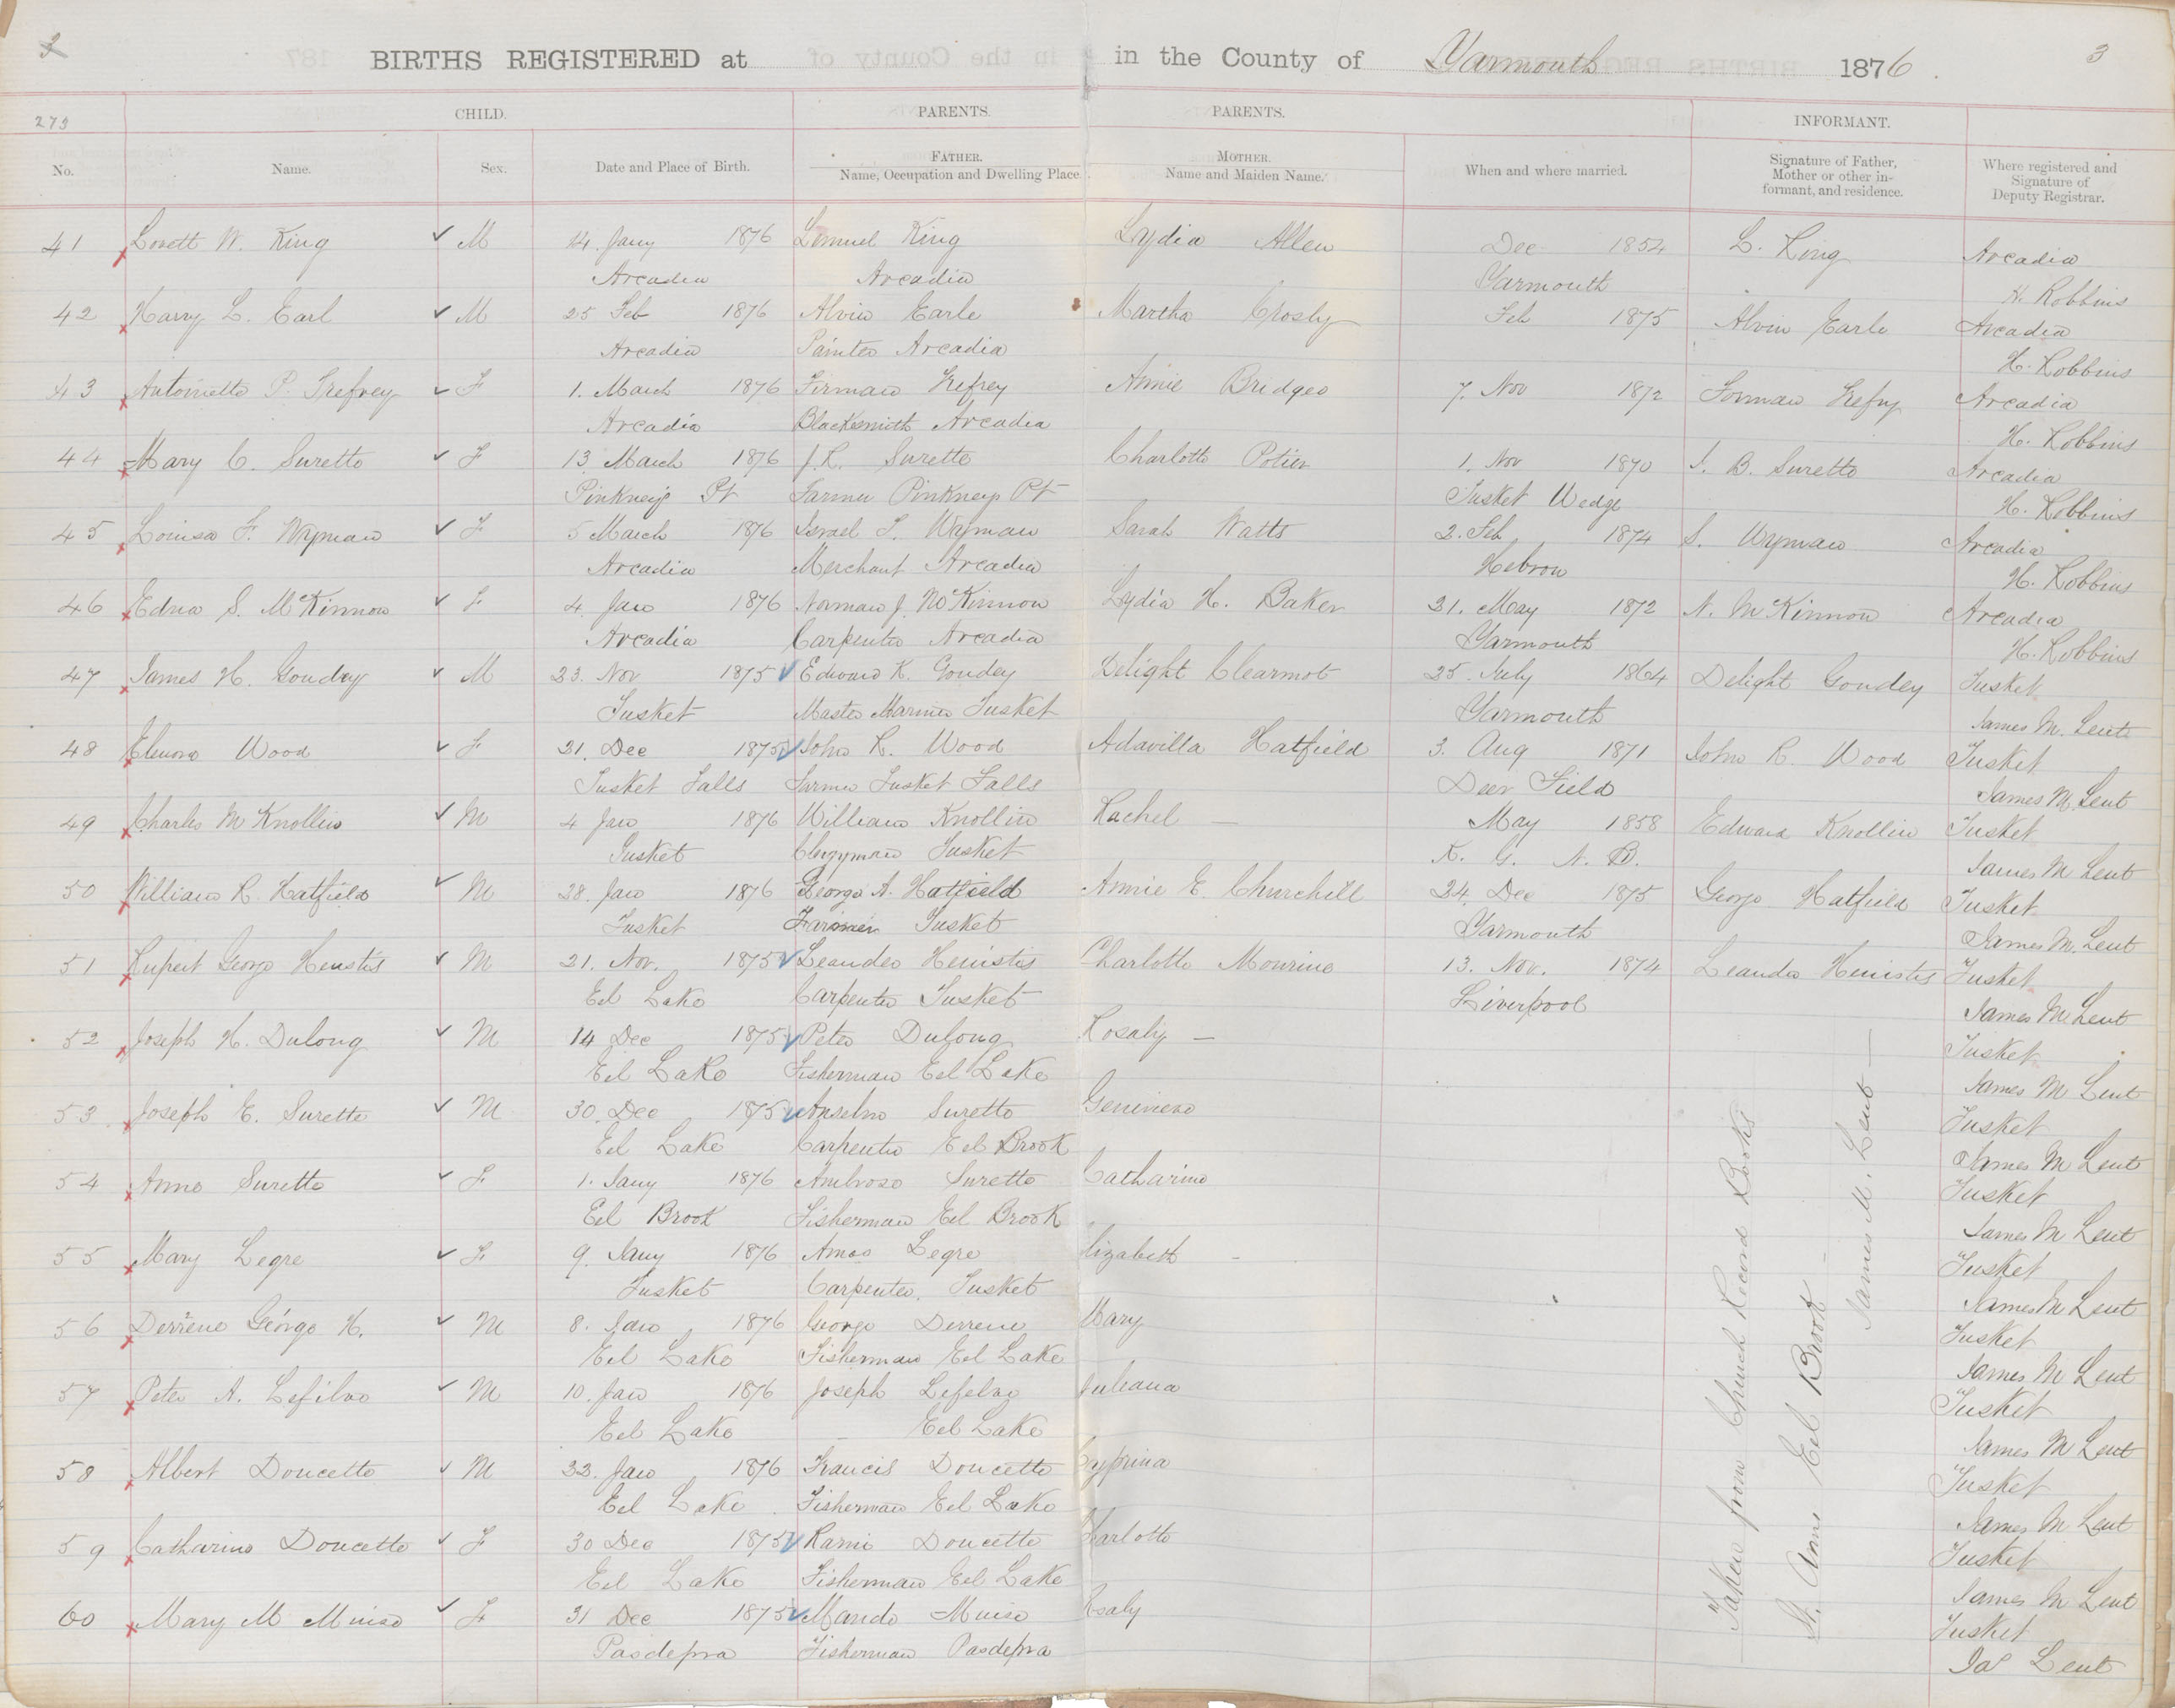 2 3
BIRTHS REGISTERED at in the County of Yarmouth 1876
273 CHILD. PARENTS. PARENTS. INFORMANT.
No. Name. Sex. Date and Place of Birth. FATHER. Name, Occupation and Dwelling Place. MOTHER. Name and Maiden Name. When and where married. Signature of Father, Mother or other informant, and residence. Where registered and Signature of Deputy Registrar.
41 Lovett W. King M 14. Jany 1876 Lemuel King Lydia Allen Dec 1854 L. King Arcadia
Arcadia Arcadia Yarmouth H. Robbins
42 Harry L. Earl M 25 Feb 1876 Alvin Earle Martha Crosby Feb 1875 Alvin Earle Arcadia
Arcadia Painter Arcadia H. Robbins
43 Antoinette P. Trefrey F 1. March 1876 Firman Trefrey Annie Bridgeo 7. Nov 1872 Forman Trefry Arcadia
Arcadia Blacksmith Arcadia H. Robbins
44 Mary C. Surette F 13. March 1876 J. R. Surette Charlotte Potier 1. Nov 1870 J. B. Surette Arcadia
Pinkneys Pt Farmer Pinkneys Pt Tusket Wedge H. Robbins
45 Louisa F. Wyman F 5 March 1876 Israel S. Wyman Sarah Watts 2. Feb 1874 S. Wyman Arcadia
Arcadia Merchant Arcadia Hebron H. Robbins
46 Edna S. McKinnon F 4. Jan 1876 Norman J. McKinnon Lydia H. Baker 21. May 1872 N. McKinnon Arcadia
Arcadia Carpenter Arcadia Yarmouth H. Robbins
47 James H. Goudey M 23. Nov 1875 Edward K. Goudey Delight Clearmot 25. July 1864 Delight Goudey Tusket
Tusket Master Mariner Tusket Yarmouth James M. Lent
48 Elenora Wood F 21. Dec 1875 John R. Wood Adavilla Hatfield 3. Aug 1871 John R. Wood Tusket
Tusket Falls Farmer Tusket Falls Deer Field James M. Lent
49 Charles M Knollin M 4 Jan 1876 William Knollin Rachel — May 1858 Edward Knollin Tusket
Tusket Clergyman Tusket K. G. N. B. James M Lent
50 William R. Hatfield M 28. Jan 1876 George A. Hatfield Annie E. Churchill 24. Dec 1875 George Hatfield Tusket
Tusket Farmer Tusket Yarmouth James M. Lent
51 Rupert George Heustis M 21. Nov. 1875 Leander Heuistis Charlotte Mourine 13. Nov. 1874 Leander Heuistis Tusket
Eel Lake Carpenter Tusket Liverpool James M Lent
52 Joseph H. Dulong M 14 Dec 1875 Peter Dulong Rosaly — Tusket
Eel Lake Fisherman Eel Lake James M Lent
53 Joseph E. Surette M 30. Dec 1875 Anselm Surette Genivieve Tusket
Eel Lake Carpenter Eel Brook James M Lent
54 Anne Surette F 1. Jany 1876 Ambrose Surette Catharine Tusket
Eel Brook Fisherman Eel Brook James M Lent
55 Mary Legre F 9. Jany 1876 Amos Legre Elizabeth - Tusket
Tusket Carpenter. Tusket James M Lent
56 Derrene George H. M 8. Jan 1876 George Derrene Mary Tusket
Eel Lake Fisherman Eel Lake James M Lent
57 Peter A. Lefilve M 10. Jan 1876 Joseph Lefelve Juleana Tusket
Eel Lake Eel Lake James M Lent
58 Albert Doucette M 22. Jan 1876 Francis Doucette Cyprina Tusket
Eel Lake Fisherman Eel Lake James M Lent
59 Catharine Doucette F 30 Dec 1875 Rami Doucette Charlotte Tusket
Eel Lake Fisherman Eel Lake James M Lent
60 Mary M Muise F 31 Dec 1875 Mande Muise Rosaly Tusket
Pasdepra Fisherman Pasdepra Jas Lent
Taken from Church Record Books
St. Anns Eel Brook -
James M. Lent —